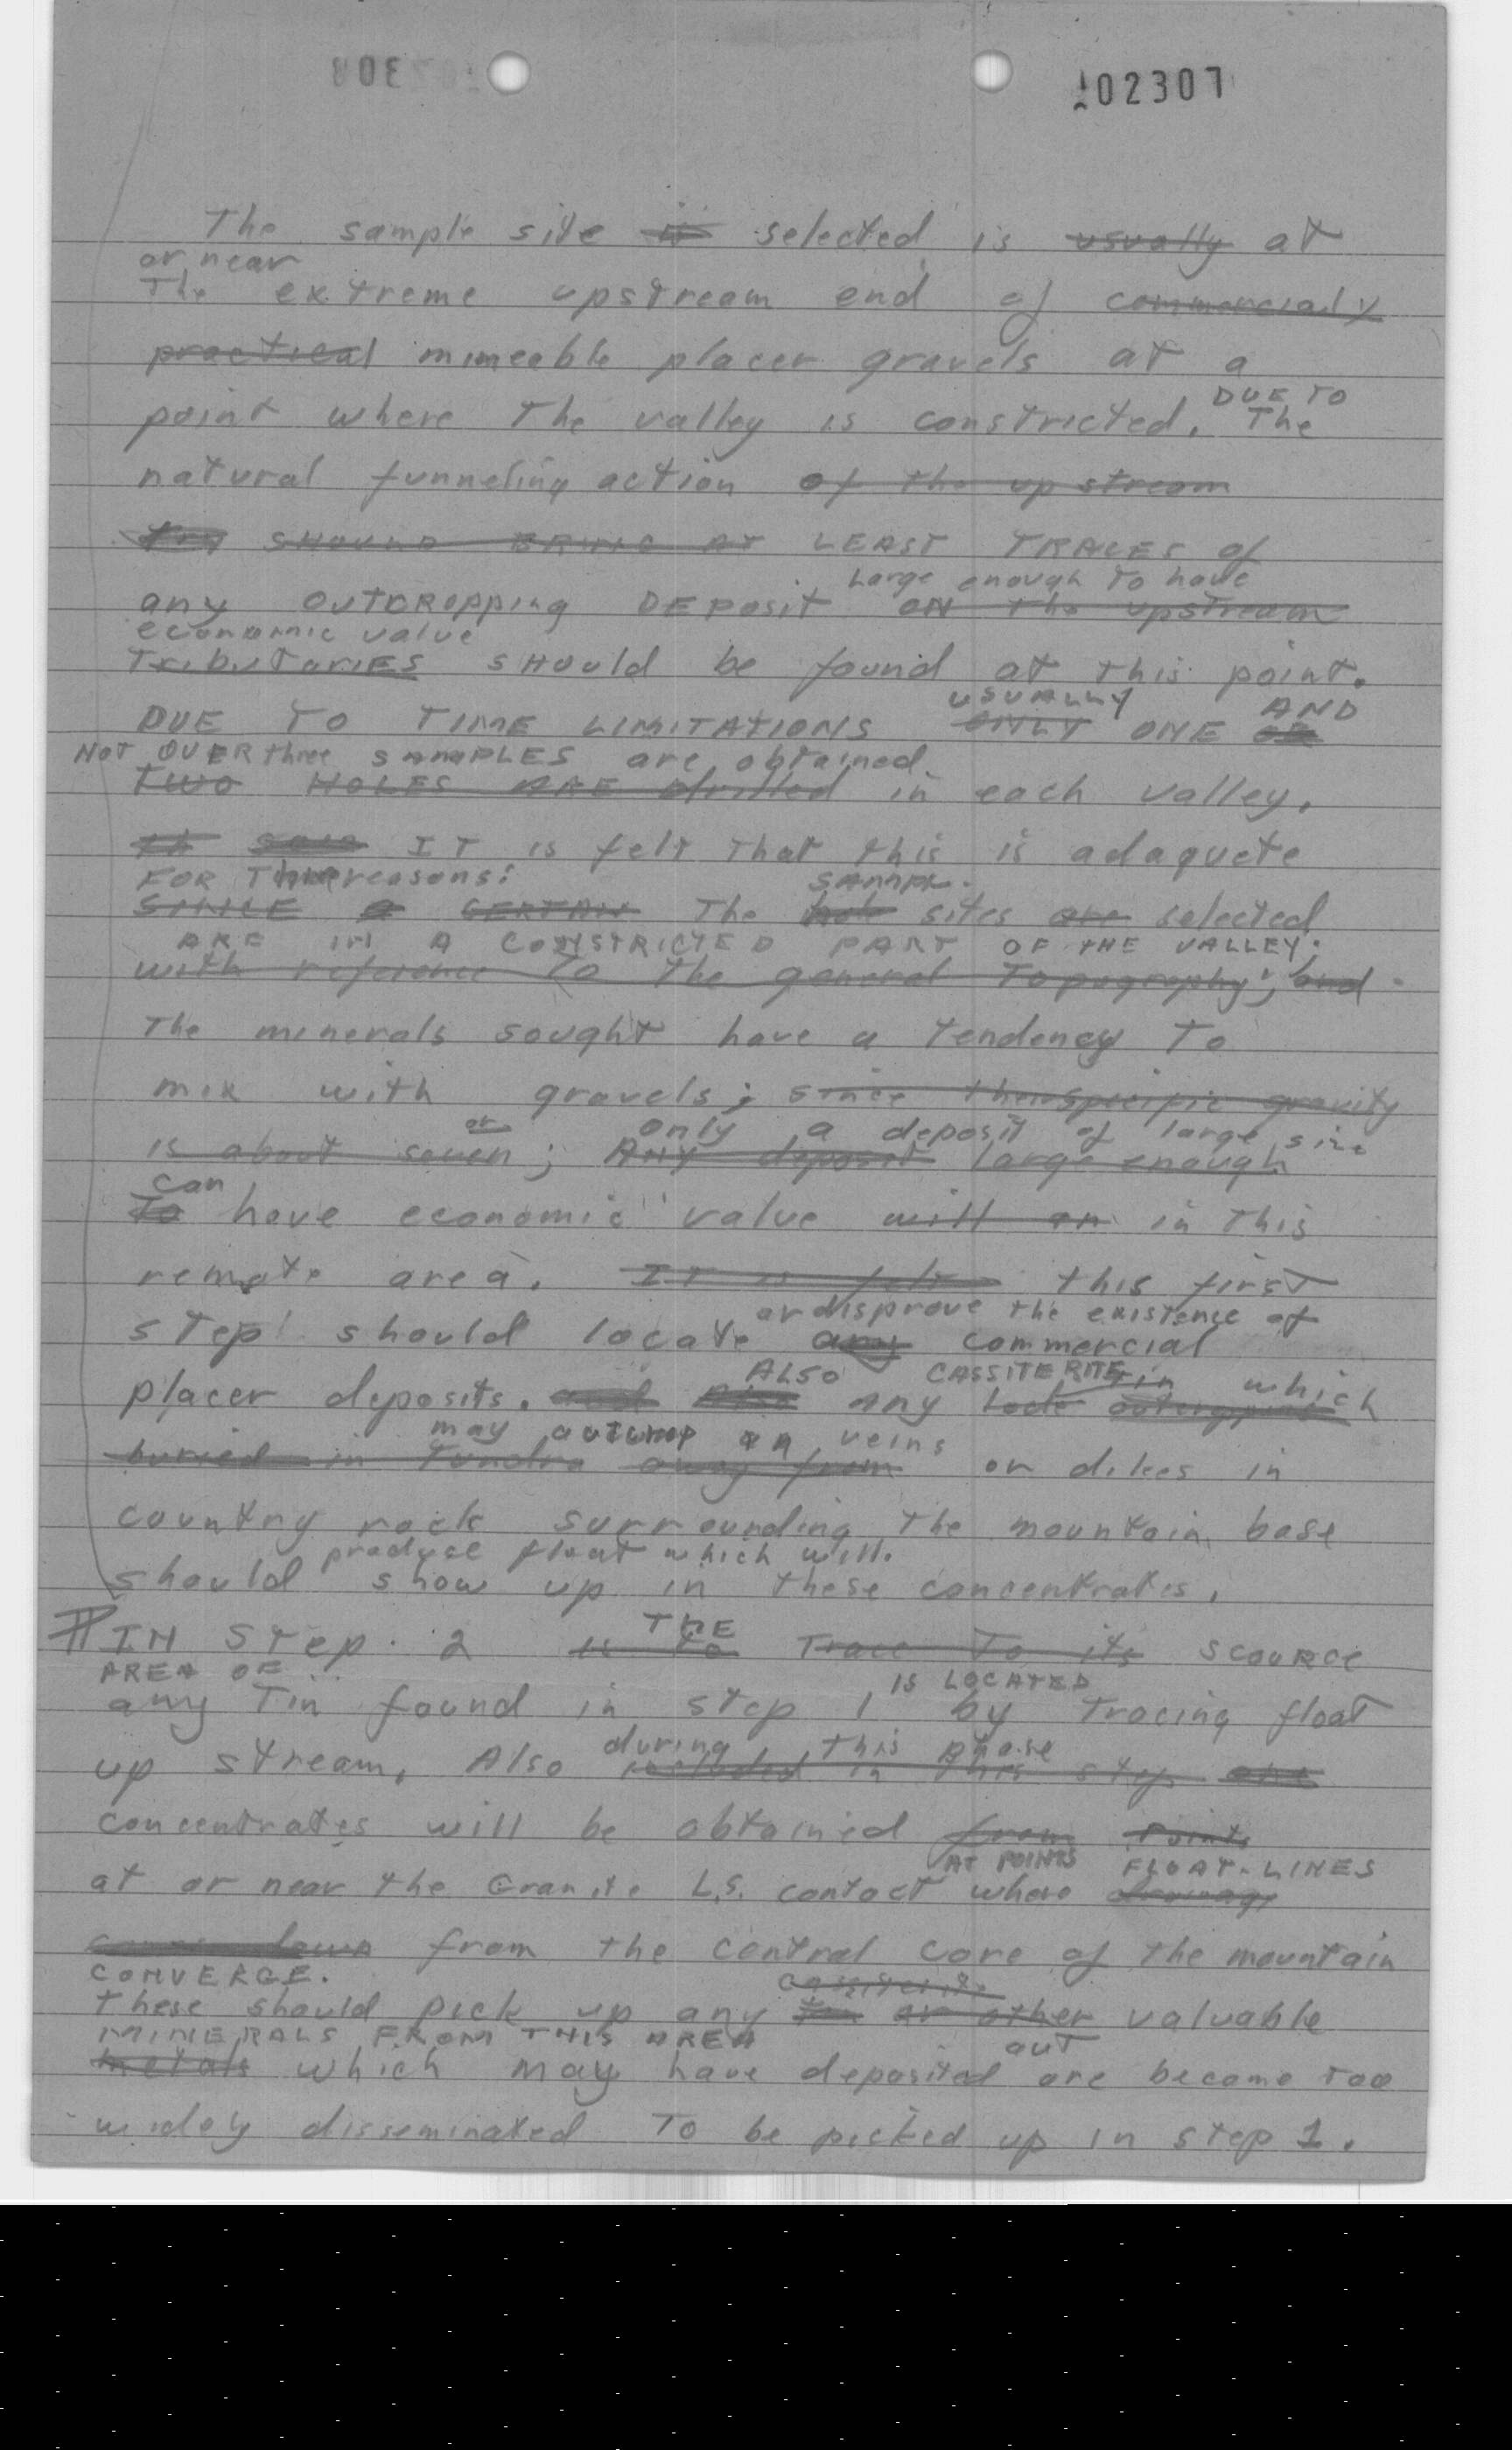 102307
The sample site is selected is usually at
or near
The extreme upstream end of commercialy
practical mineable placer gravels at a
DUE TO
point where The valley is constricted. The
natural funneling action of the up stream
SHOULD BRING AT LEAST TRACES of
Large enough To have
any OUTCROPPING DEPOSIT ON The upstream
economic value
TRibuTariES SHOULD be found at this point.
USUALLY AND
DUE TO TIME LIMITATIONS ONLY ONE OR
NOT OVER three SAMPLES are obtained
TWO HOLES ARE drilled in each valley.
IT is felt That this is adaquete
FOR reasons: SAMPLE
SINCE a CERTAIN The hole sites are selected
ARE IN A CONSTRICTED PART OF THE VALLEY;
with reference To The general Topography; and
The minerals sought have a Tendency To
mix with gravels; since their specific gravity
or only a deposit of large size
is about seven; ANY deposit large enough
can
To have economic value will on in This
remote area. It is felt this first
or disprove the existence of
step should locate any commercial
ALSO CASSITERITE in which
placer deposits. and also any lode outcropping
may outcrop veins
buried in Tundra away from or dikes in
country rock surrounding The mountain base
produce float which will
should show up in these concentrates.
THE
IN STep 2 is To Trace To its scource
AREA OF IS LOCATED
any Tin found in step 1 by Tracing float
during this phase
up stream, Also included in This step are
concentrates will be obtained from Points
AT POINTS FLOAT-LINES
at or near the Granite L.S. contact where drainage
comes down from the central core of The mountain
CONVERGE. cassiterite
these should pick up any tin or other valuable
MINERALS FROM THIS AREA out
metals which may have deposited are became Too
widely disseminated To be picked up in step 1.